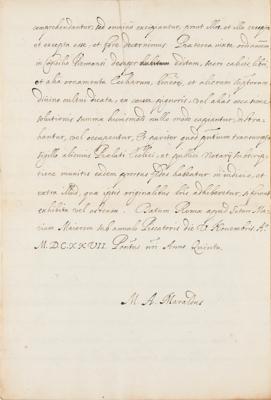 comprehendantur, sed omnino excipiantur, prout illos et illa excepta
et excepta esse, et fore decernimus. Praeterea iuxta ordinationem
in Concilio Romano desuper editam, sacri calices, libri,
et alia ornamenta Ecclesiarum, licet et aliorum
divino cultui dicata, ex causa pignoris, vel alias occasione
solutionis summa huiusmodi nullo modo capiantur,
bantur, vel occupentur, Et pariter quod
sigillo alicuius Praelati Eccl.ci, et publici Notarij subscrip
tione munitis eadem prorsus fides habeatur in iudicio, et
extra illud, quae ipsis originalibus lris adhiberetur, si forent
exhibita vel ostensa. Datum Romae apud Sanctam Ma
riam Maiorem sub annulo Piscatoris die V Novembris
M.DC.XXVII. Pontus nri Anno Quinto.
M. A. Maraldus